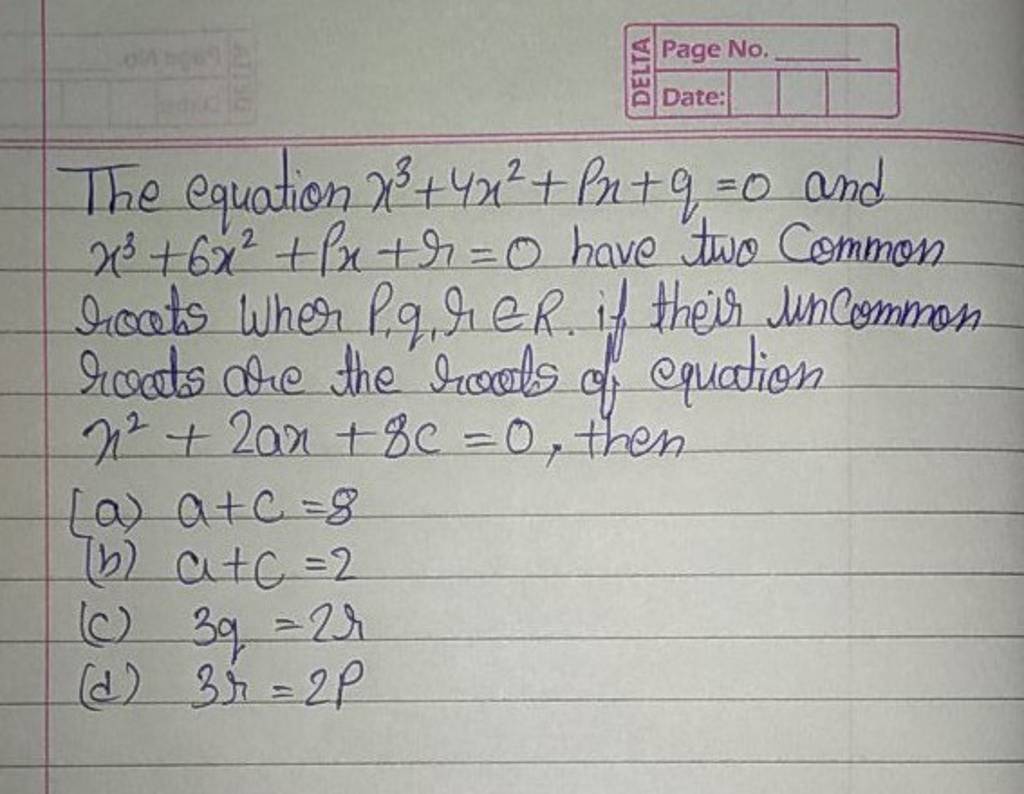 DELTA
Page No.
Date:
The equation x³+4x²+Px+q=0 and
x³+6x²+Px+r=0 have two Common
roots Wher P,q,r∈R. if their unCommon
roots are the roots of equation
x²+2ax+8c=0, then
(a) a+c=8
(b) a+c=2
(c) 3q=2r
(d) 3r=2P